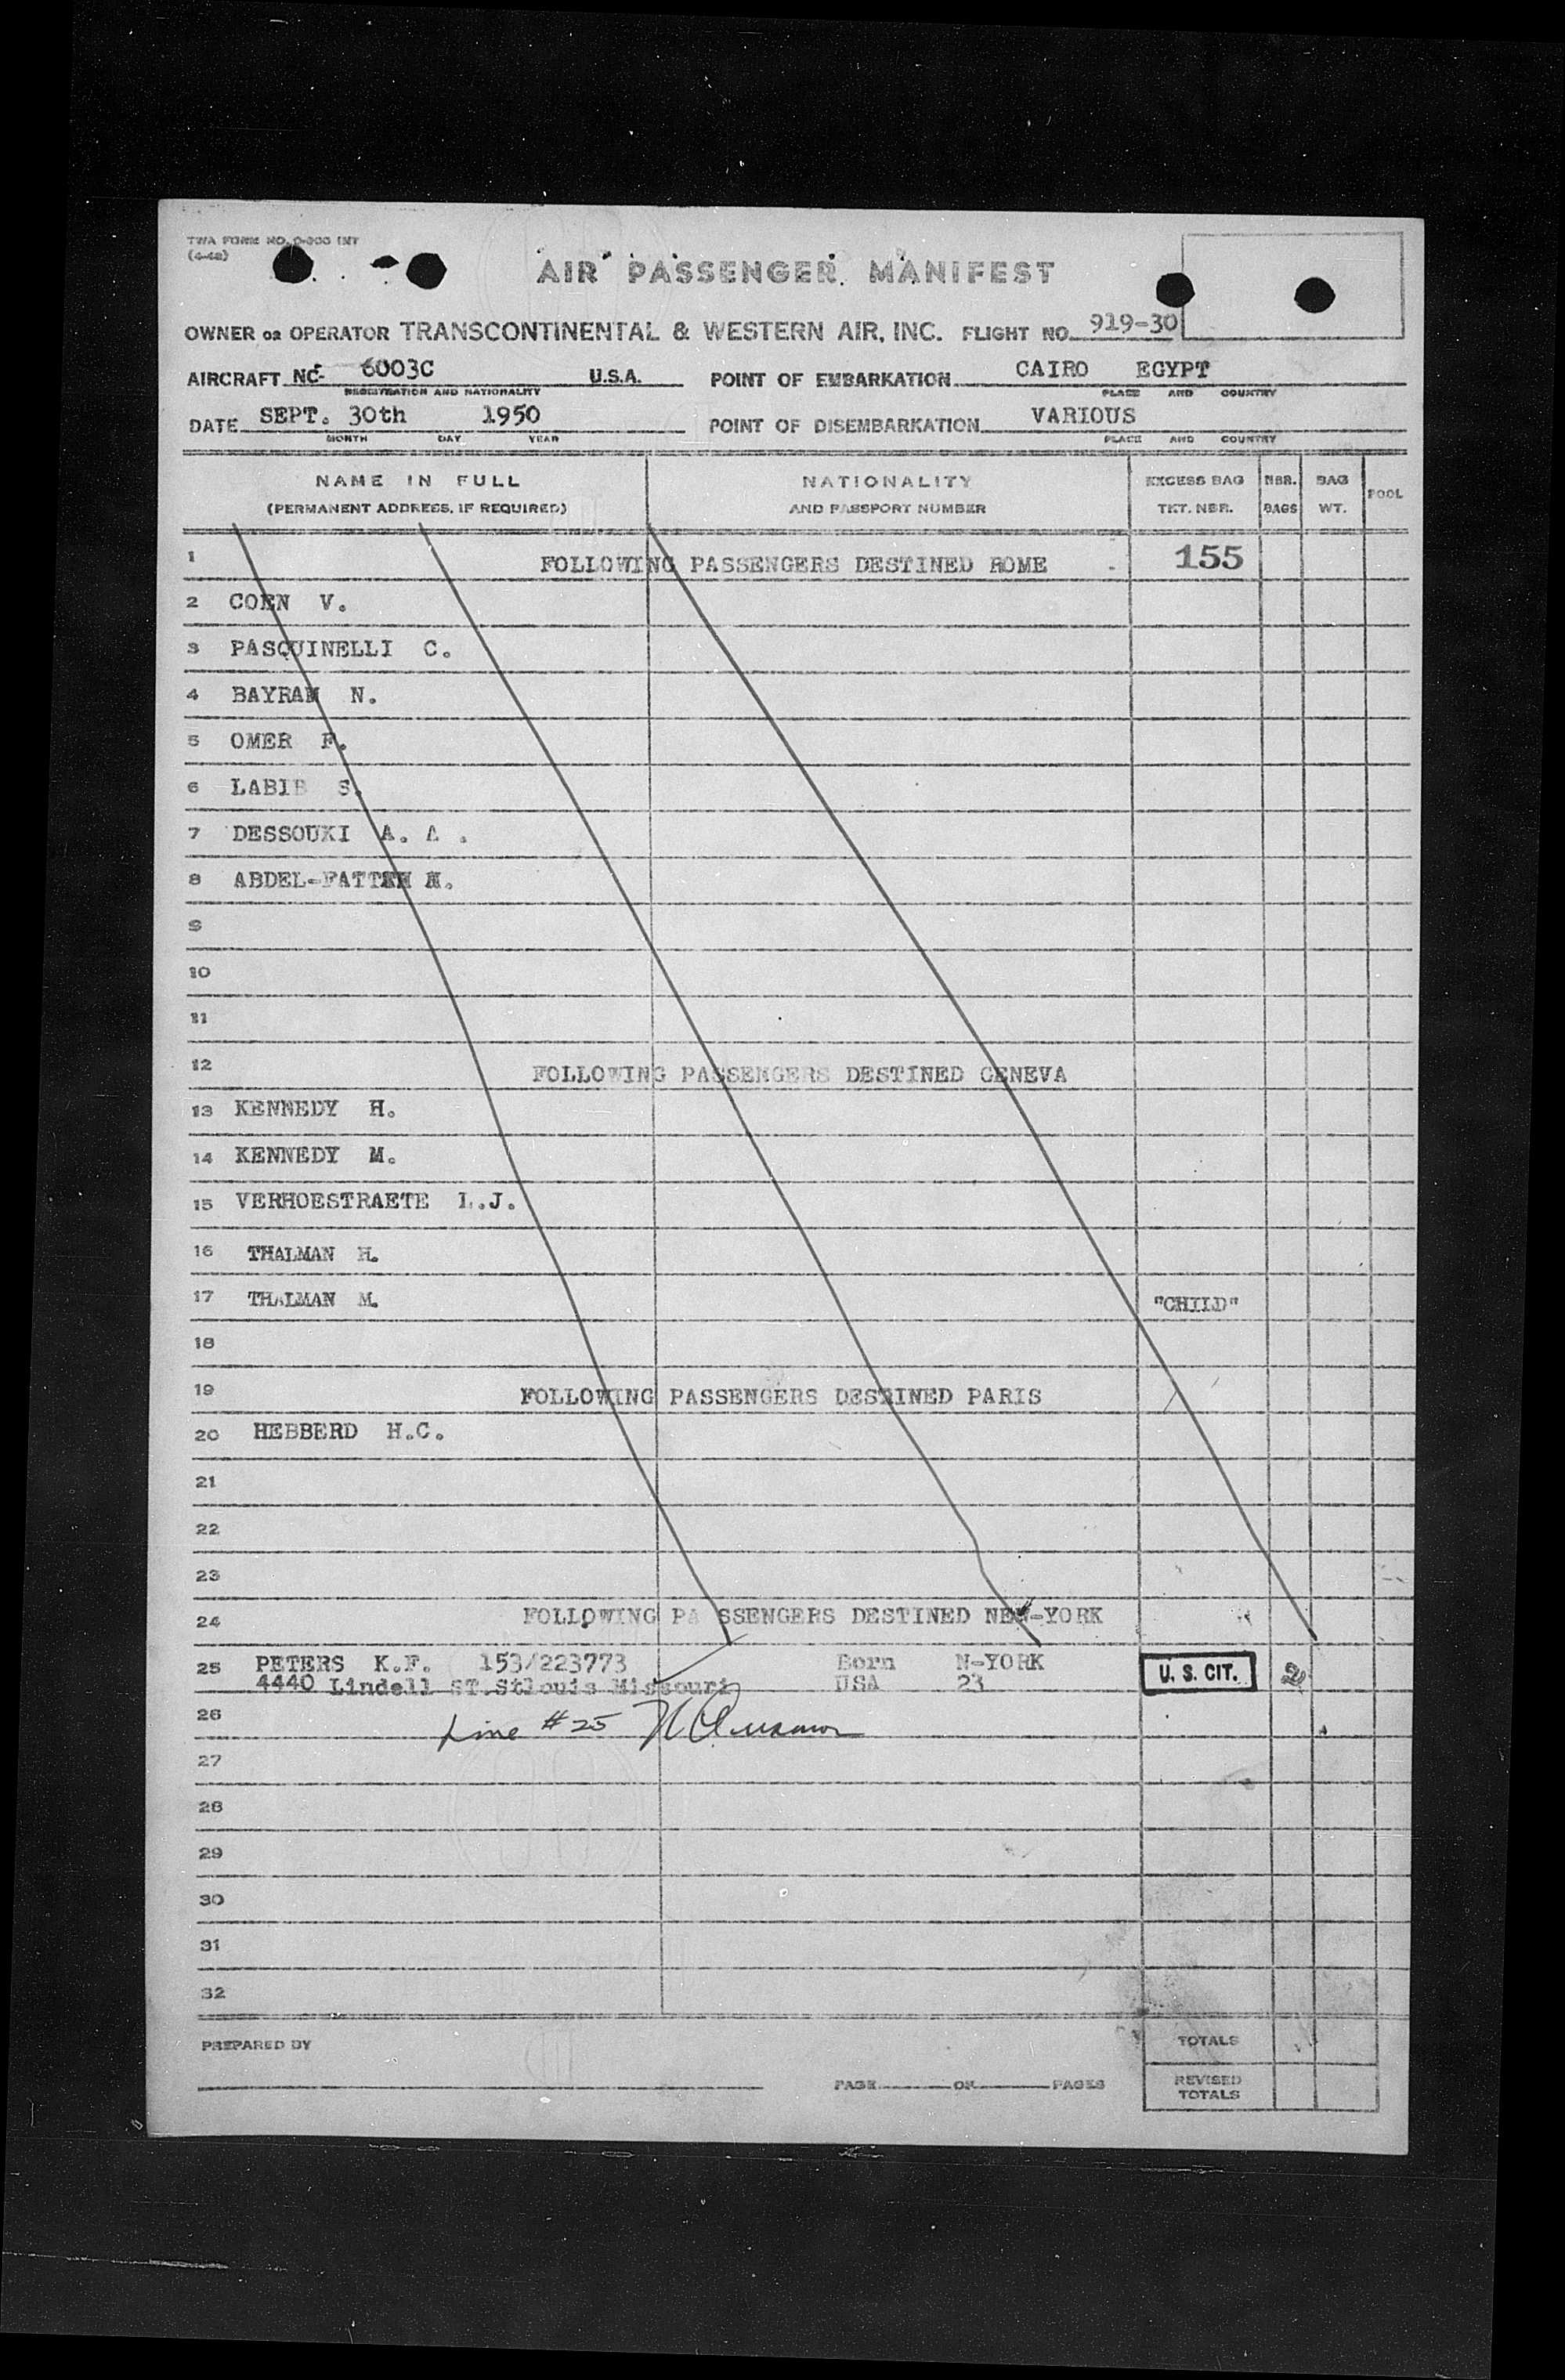 TWA FORM NO. 0-300 INT
(4-48)
AIR PASSENGER MANIFEST
OWNER OR OPERATOR TRANSCONTINENTAL & WESTERN AIR, INC. FLIGHT NO. 919-30
AIRCRAFT NC- 6003C U.S.A. POINT OF EMBARKATION CAIRO EGYPT
REGISTRATION AND NATIONALITY PLACE AND COUNTRY
DATE SEPT. 30th 1950 POINT OF DISEMBARKATION VARIOUS
MONTH DAY YEAR PLACE AND COUNTRY
NAME IN FULL NATIONALITY EXCESS BAG NBR. BAG POOL
(PERMANENT ADDRESS, IF REQUIRED) AND PASSPORT NUMBER TKT. NBR. BAGS WT.
1 FOLLOWING PASSENGERS DESTINED ROME - 155
2 COEN V.
3 PASQUINELLI C.
4 BAYRAM N.
5 OMER F.
6 LABIB S.
7 DESSOUKI A. A .
8
9
10
11
12 FOLLOWING PASSENGERS DESTINED GENEVA
13 KENNEDY H.
14 KENNEDY M.
15 VERHOESTRAETE L.J.
16 THALMAN H.
17 THALMAN M. "CHILD"
18
19 FOLLOWING PASSENGERS DESTINED PARIS
20 HEBBERD H.C.
21
22
23
24 FOLLOWING PA SSENGERS DESTINED NEW-YORK
25 PETERS K.F. 153/223773 Born N-YORK U. S. CIT. 2
4440 Lindell ST.Stlouis Missouri USA 23
26 Line #25
27
28
29
30
31
32
PREPARED BY TOTALS
PAGE OF PAGES REVISED
TOTALS